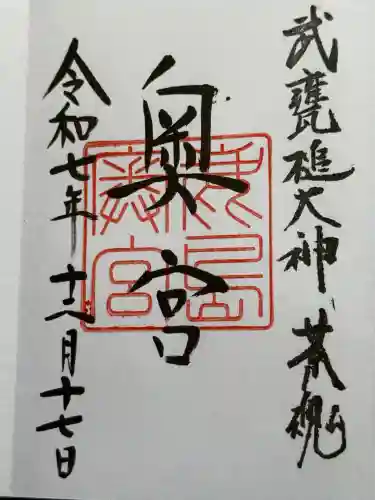 武甕槌大神 荒魂
奥宮
令和七年十二月十七日
鹿島
宮